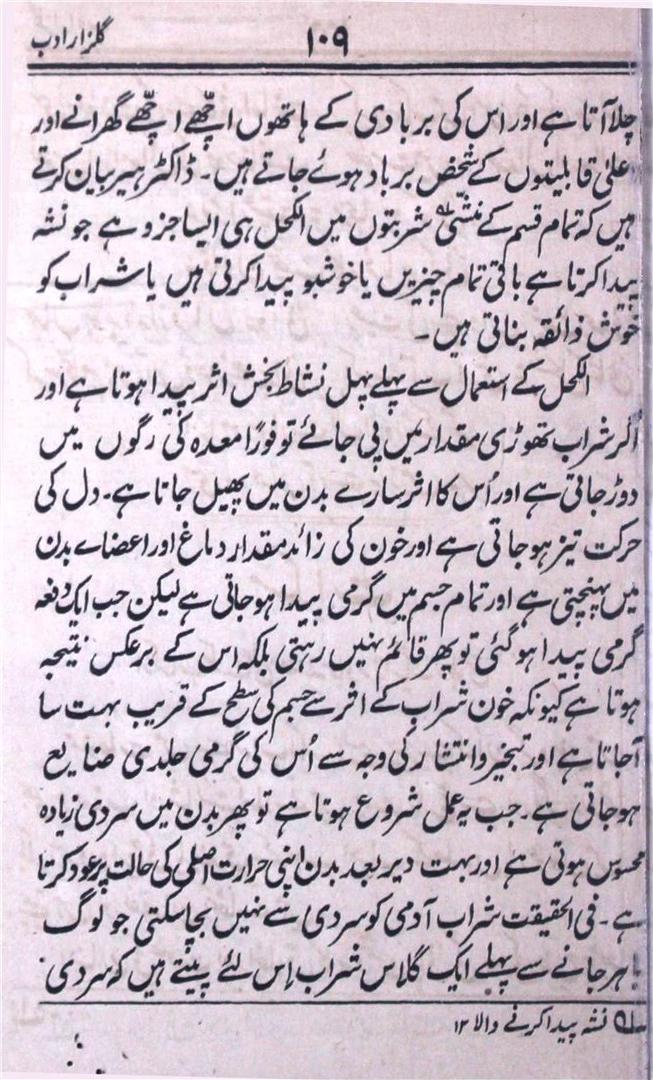 گلزار ادب
۱۰۹
چلا آتا ہے اور اس کی بربادی کے ہاتھوں اچّھے اچّھے گھرانے اور
اعلیٰ قابلیتوں کے شخص برباد ہوئے جاتے ہیں۔ ڈاکٹر ہیر بیان کرتے
ہیں کہ تمام قسم کے منشّی شربتوں میں الکحل ہی ایسا جزو ہے جو نشہ
پیدا کرتا ہے باقی تمام چیزیں یا خوشبو پیدا کرتی ہیں یا شراب کو
خوش ذائقہ بناتی ہیں۔
الکحل کے استعمال سے پہلے پہل نشاط بخش اثر پیدا ہوتا ہے اور
اگر شراب تھوڑی مقدار میں پی جائے تو فورًا معدہ کی رگوں میں
دوڑ جاتی ہے اور اُس کا اثر سارے بدن میں پھیل جاتا ہے۔ دل کی
حرکت تیز ہو جاتی ہے اور خون کی زائد مقدار دماغ اور اعضاے بدن
میں پہنچتی ہے اور تمام جسم میں گرمی پیدا ہو جاتی ہے لیکن جب ایک دفعہ
گرمی پیدا ہو گئی تو پھر قائم نہیں رہتی بلکہ اس کے برعکس نتیجہ
ہوتا ہے کیونکہ خون شراب کے اثر سے جسم کی سطح کے قریب بہت سا
آجاتا ہے اور تبخیر و انتشار کی وجہ سے اُس کی گرمی جلدی ضایع
ہو جاتی ہے۔ جب یہ عمل شروع ہوتا ہے تو پھر بدن میں سردی زیادہ
محسوس ہوتی ہے اور بہت دیر بعد بدن اپنی حرارت اصلی کی حالت پر عود کرتا
ہے۔ فی الحقیقت شراب آدمی کو سردی سے نہیں بچا سکتی جو لوگ
باہر جانے سے پہلے ایک گلاس شراب اِس لئے پیتے ہیں کہ سردی
لہ نشہ پیدا کرنے والا ۱۲